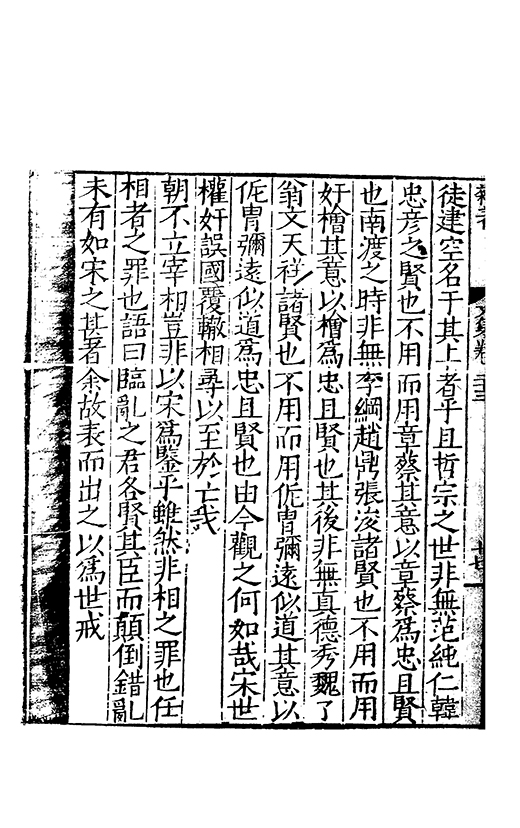 文集卷三十三
徒建空名于其上者乎且哲宗之世非無范純仁韓
忠彥之賢也不用而用章蔡其意以章蔡為忠且賢
也南渡之時非無李綱趙鼎張浚諸賢也不用而用
奸檜其意以檜為忠且賢也其後非無真德秀魏了
翁文天祥諸賢也不用而用侂冑彌遠似道其意以
侂冑彌遠似道為忠且賢也由今觀之何如哉宋世
權奸誤國覆轍相尋以至於亡我
朝不立宰相豈非以宋為鑒乎雖然非相之罪也任
相者之罪也語曰臨亂之君各賢其臣而顛倒錯亂
未有如宋之甚者余故表而出之以為世戒